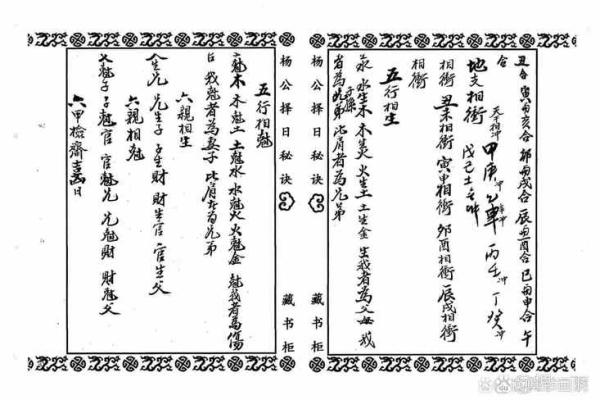 丑合 寅 亥合 卯 戌合 辰 酉合 巳 申合 午
合 天干相冲 甲庚冲 乙辛冲 丙壬冲 丁癸冲
地支相衝 戊己土
相衝 丑未相衝 寅申相衝 卯酉相衝 辰戌相衝
相衝
五行相生
水生木 木生火 火生土 土生金 生我者為父母 我
者為 子孫 比肩者為兄弟
杨公择日秘诀 藏书柜
杨公择日秘诀 藏书柜
五行相魁
魁木 木魁土 土魁水 水魁火 火魁金 魁我者為傷
我魁者為妻子 比肩者為兄弟
六親相生
生兄 兄生子 子生財 財生官 官生父
六親相魁
父魁子 子魁官 官魁兄 兄魁財 財魁父
六甲檢齋 日